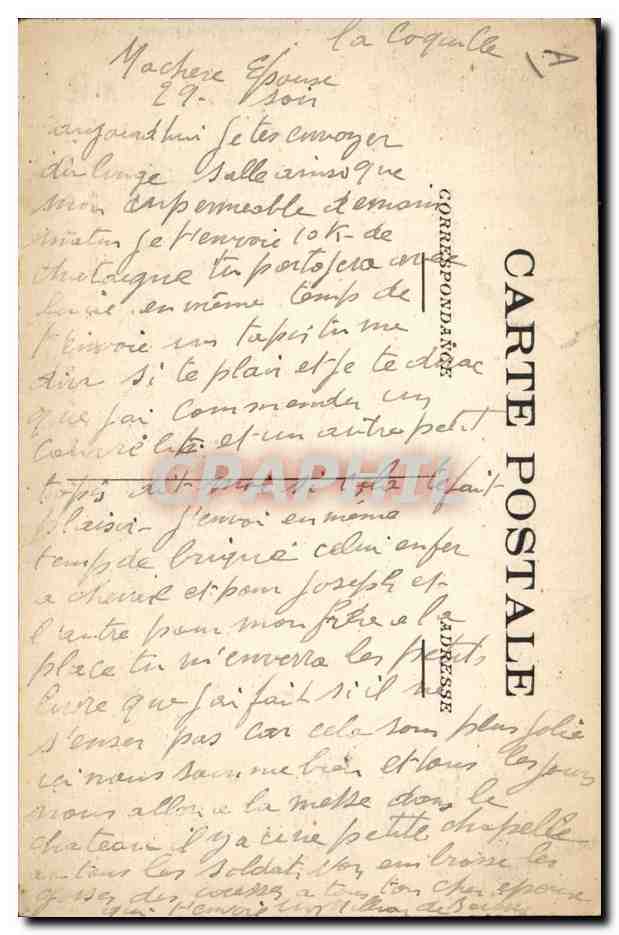 la Coquille
A
Machere Epouse
29- soir
aujourdhui je tes envoyer
du linge salle ainsi que
mon empermeable demain
matin je t'envoie 10 K- de
chataigne tu partagera avec
en même temps je
t'envoie un tapis tu me
dira si te plait et je te dirai
que j'ai commender un
couvre lit et un autre petit
tapis dit moi si cela te fait
plaisir- j'envoi en même
temps de briqué celui enfer
a cheval et pour Joseph et
l'autre pour mon frère a la
place tu m'enverra les petits
que j'ai fait si il ne
s'enser pas car cela son plus jolie
ici nous somme bien et tous les jours
nous allon a la messe dans le
chateau il y a une petite chapelle
tous les soldats embrasse les
gosses des a tous ton cher epoux
qui t'envoie un million de
CARTE POSTALE
CORRESPONDANCE
ADRESSE
CPAPHIL